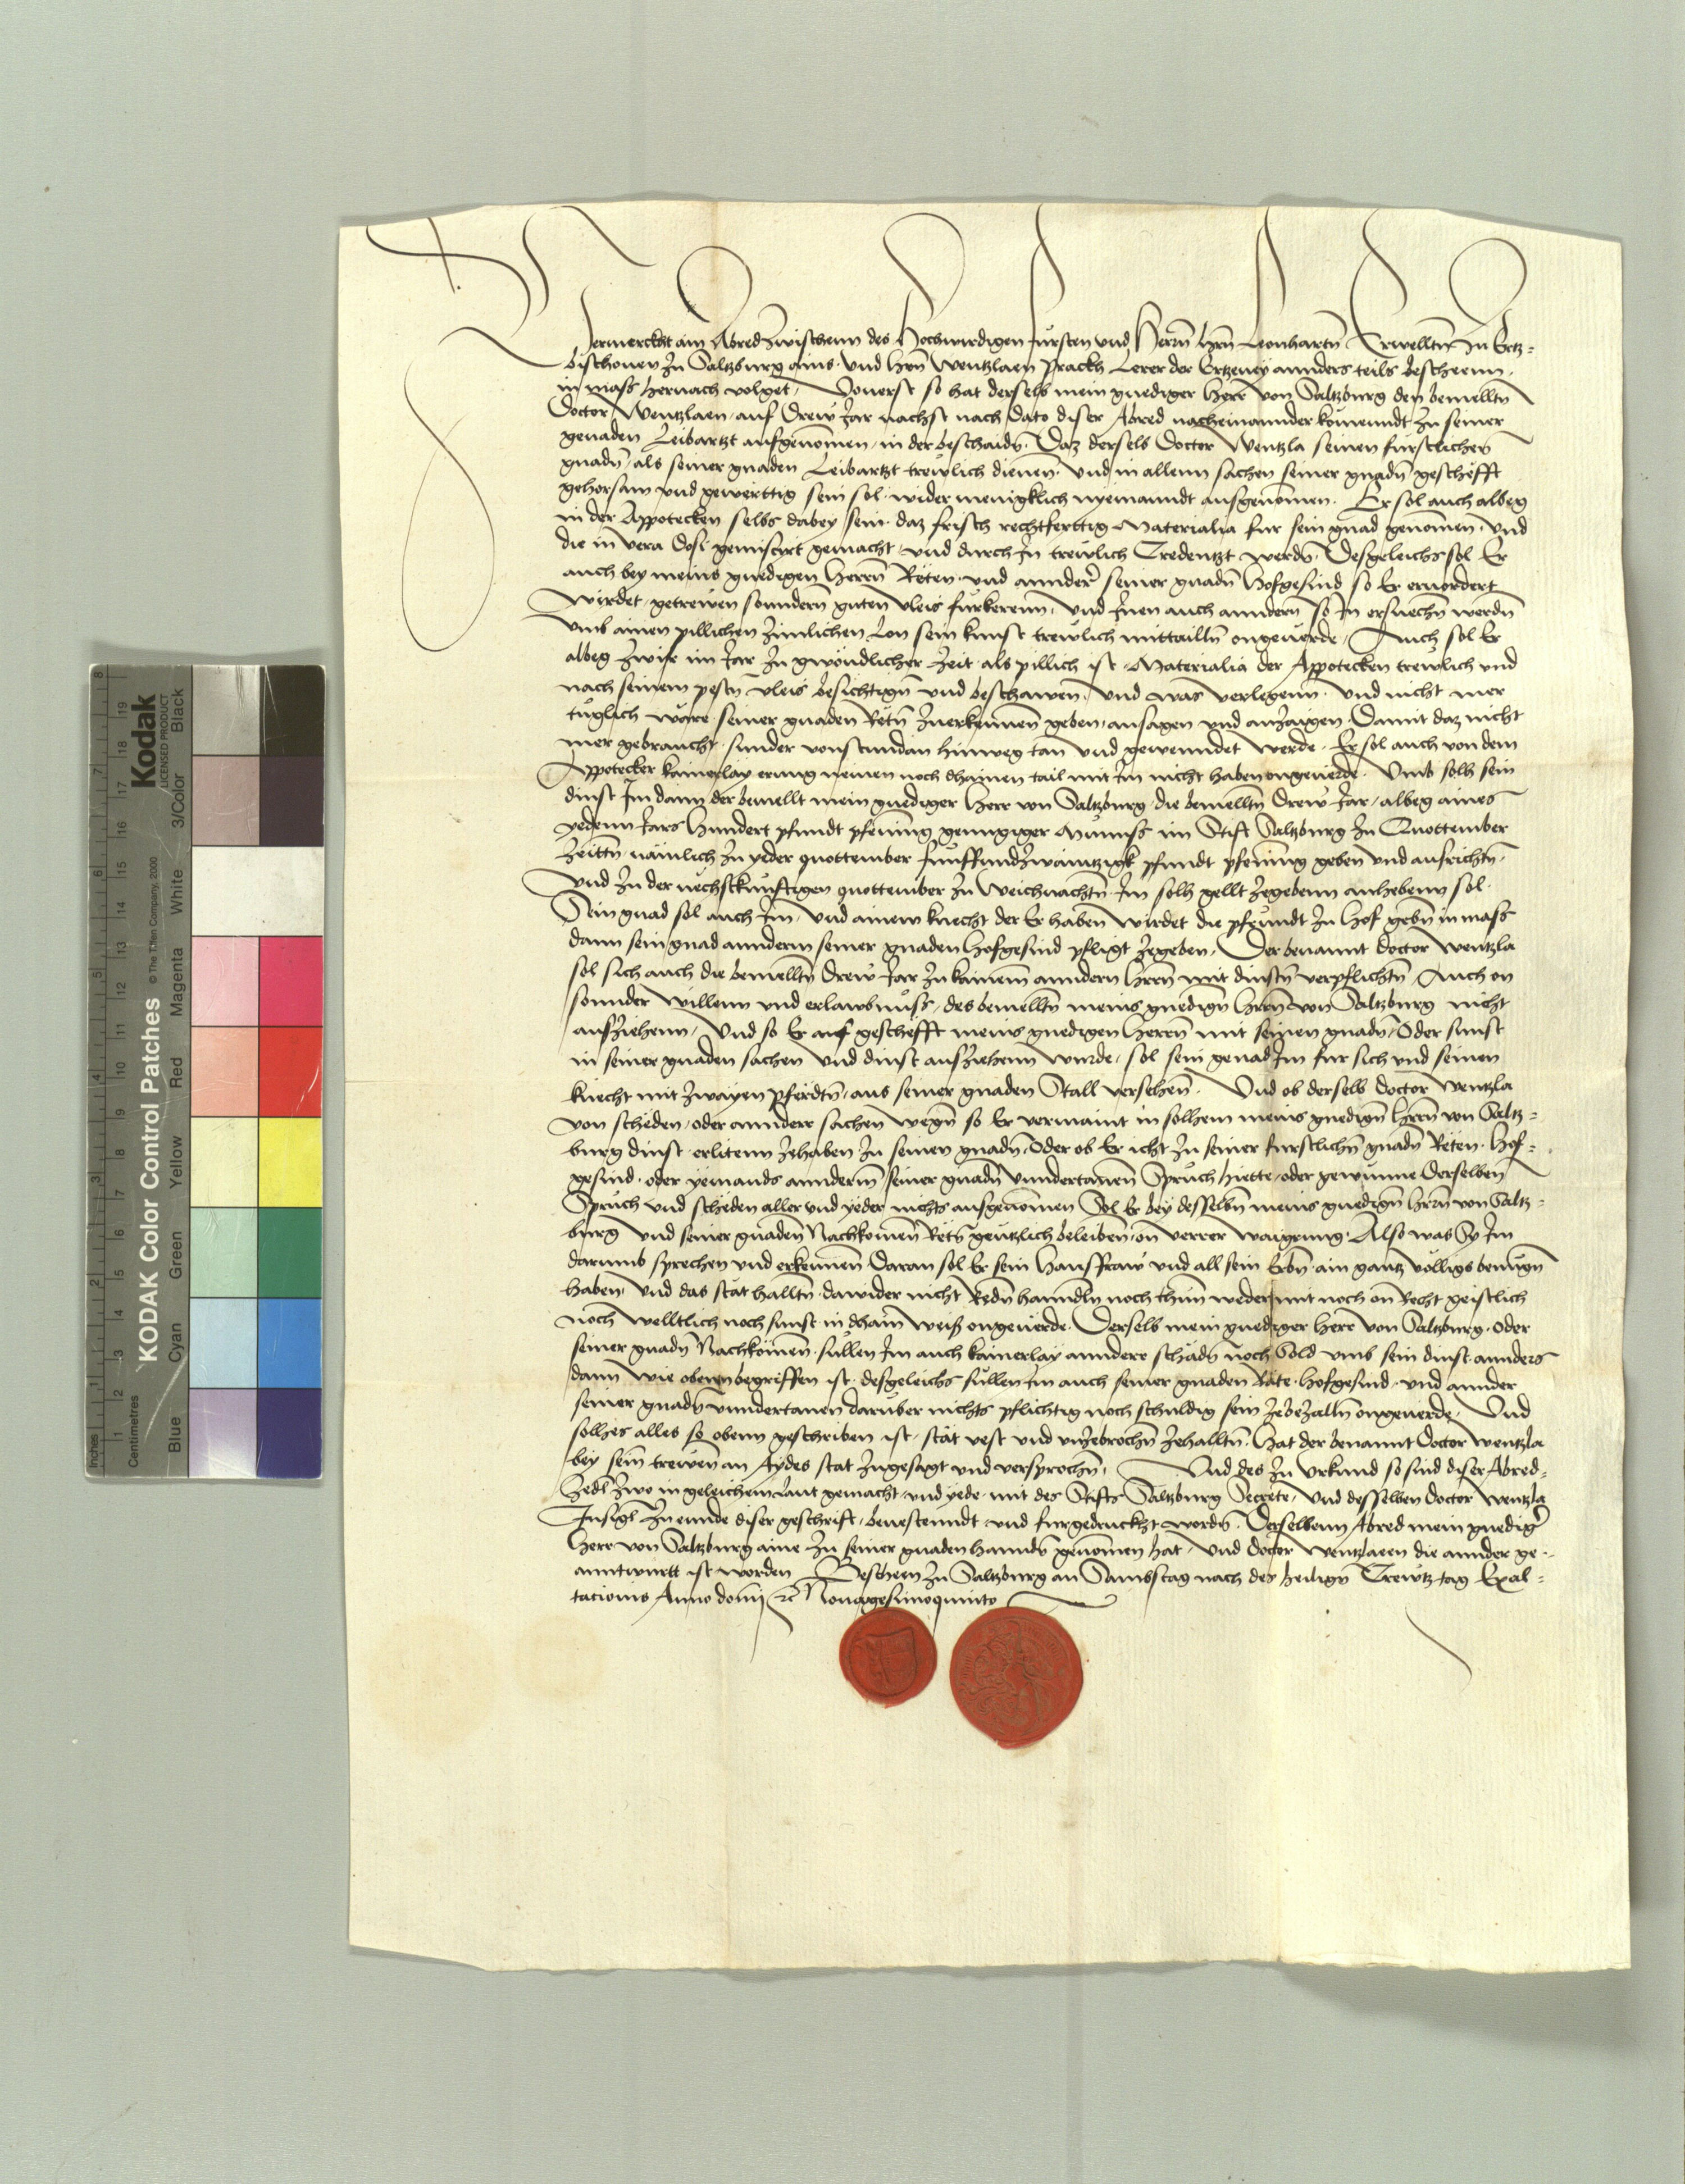 Vermerckht ain Abred Zwischenn des Hochwirdigen fürsten und Herrn hrn Leonharten Erwellten zu Ertz-
bischouen zu Saltzburg ains. Und hrn Wentzlaen Prackh Lerer der Ertzney annders teils beschehenn.
in mass hernach volget. Vonerst so hat derselb mein gnediger Herr von Saltzburg den bemelltn
Doctor Wentzlaen auf Drew Jar nachst nach Dato diser Abred nacheinannder komenndt zu seiner
genaden Leibartzt aufgenomen, in der beschaidn. Daz derselb Doctor Wentzla seinen fürstlichen
gnadn, als seiner gnaden Leibartzt trewlich dienen. Und in allenn sachen seiner gnadn geschefft
gehorsam und gewerttig sein sol. wider menigklich nyemanndt ausgenomen. Er sol auch albeg
in der Appotecken selbs dabey sein. daz frisch rechtferttig Materialia fur sein gnad genomen, Und
die in vera dosi gemiscirt gemacht, und durch In trewlich Credentzt werdn. Desgeleichs sol Er
auch bey meins gnedigen Herrn Räten. und annderr seiner gnadn Hofgesind so Er eruordert
wirdet, getrewen sonndern guten vleis fürkerenn. Und Inen auch anndern so In ersuechn werdn
umb ainen pillichen zimlichen Lon sein kunst trewlich mittailln ongeuerde. Auch sol Er
albeg zwir im Jar zu gwondlicher zeit als pillich ist. Materialia der Appotecken trewlich und
nach seinem pestn vleis besichtign und beschawen. Und was verlegenn. und nicht mer
tuglich wäre seiner gnaden Retn zuerkennen geben, ansagen und anzaigen. Damit daz nicht
mer gebraucht. sunder vonstundan hinweg tan und gewenndet werde. Er sol auch von dem
Appotecker kainerlay erung nemen noch dhainen tail mit Im nicht haben ongeuerde. Umb solh sein
dinst Im dann der bemellt mein gnediger Herr von Saltzburg die bemelltn Drew Jar, albeg aines
yedenn Jars Hundert pfundt pfening genngiger Münnss im Stift Saltzburg zu Quottember
zeittn, nämlich zu yeder quottember funffundzwaintzigk pfundt pfening geben und ausrichtn.
Und zu der nechstkünftigen quottember zu Weichnachtn. Im solh gellt zegebenn anhebenn sol.
Sein gnad sol auch Im, und ainem knecht der Er haben wirdet die pfrundt zu Hof gebn in mass
dann sein gnad anndern seiner gnaden Hofgesind pfligt zegeben. Der benannt doctor Wentzla
sol sich auch die bemelltn Drew Jar zu kainem anndern Hrrn mit dinstn verpflichtn. Auch on
sonnder willenn und erlawbnuss, des bemelltn meins gnedign Hrrn von Saltzburg nicht
ausziehenn, Und so Er auf geschefft meins gnedigen Herrn mit seinen gnadn, Oder sunst
in seiner gnaden sachen und dinst ausziehenn wurde, sol sein genad Im fur sich und seinen
knecht mit zwayen pferdtn, aus seiner gnaden Stall versehen. Und ob derselb doctor Wentzla
von schäden, oder annderr sachen wegn so Er vermaint in solhem meins gnedign Hrrn von Saltz-
burg dinst erlitenn zehaben zu seinen gnadn, Oder ob Er icht zu seiner furstlichn gnadn Räten. Hof-
gesind, oder yemands anndern seiner gnadn unndertanen Spruch hiette, oder gewunne derselben
Spruch und schäden aller und yeder nichts ausgenomen Sol Er bey desselbn meins gnedign Hrrn von Saltz-
burg und seiner gnaden Nachkomen Rätn gentzlich beleiben, on verrer waigrung. Also was Sy Im
darumb sprechen und erkennen Daran sol Er sein Hausfraw und all sein Erbn. ain gantz völligs benügn
haben. Und das stät halltn. dawider nicht Redn hanndln noch thun weder mit noch on Recht geistlich
noch welltlich noch sunst in dhain weiss ongeuerde. Derselb mein gnediger Herr von Saltzburg, Oder
seiner gnadn Nachkomen. sullen Im auch kainerlay anndere schädn noch Sold umb sein dinst annders
dann wie obenn begriffen ist. desgeleichs sullen Im auch seiner gnaden Räte. Hofgesind. und annder
seiner gnadn unndertanen darüber nichts pflichtig noch schuldig sein zebezalln ongeuerde. Und
solhes alles so obenn geschriben ist, stät vest und unzebrochn zehalltn. hat der benannt Doctor Wentzla
bey sein trewen an Aydes stat zugesagt und versprochn. Und des zu Urkund so sind diser Abred-
Zedl zwo in geleichem Laut gemacht, und yede, mit des Stifts Saltzburg Secrete, und desselben Doctor Wentzla
Insigl zu ennde diser geschrift, bevestenndt, und furgedruckht wordn. Derselbenn Abred mein gnedigr
Herr von Saltzburg aine zu seiner gnaden hanndn genomen hat, und doctor Wentzlaen die annder ge-
anntwurtt ist worden. Beschehen zu Saltzburg an Sambstag nach des heiligen Crewtz tag Exal-
tacionis Anno domij etc Nonagesimoquinto
KODAK Color Control Patches © The Tiffen Company, 2000
Kodak
LICENSED PRODUCT
Inches
Centimetres
Blue Cyan Green Yellow Red Magenta White 3/Color Black